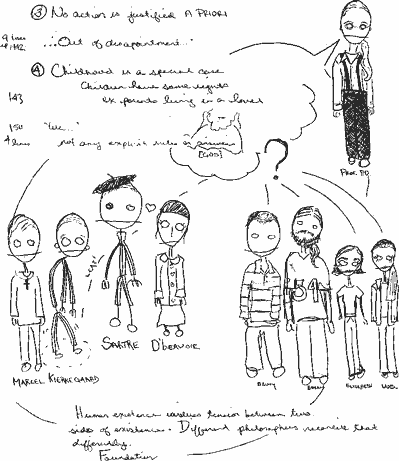 ③ No action is justified A PRIORI
..."Out of disappointment..."
④ Childhood is a special case
Children have some rights
ex parents living in a loved
143
150 "We..."
4 lines not any explicit rules or answers
[GOD]
?
PROF. PO.
MARCEL KIERKEGAARD SARTRE D'BEAVOIR
BENNY
Human existence involves tension between two
sides of existence. Different philosophers reconcile that
differently.
Foundation